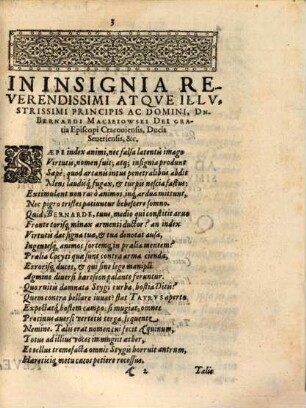 3
IN INSIGNIA RE-
VERENDISSIMI ATQVE ILLV-
STRISSIMI PRINCIPIS AC DOMINI, DN.
BERNARDI MACIEIOWSKI DEI GRA-
tia Episcopi Cracouiensis, Ducis
Seueriensis, &c.
SÆPE index animi, nec falsa latentis imago
Virtutis, nomen fuit; atq; insignia produnt
Sæpè, quod arcanis intus penetralibus abdit
Mens laudisq; fugax, & turpis nescia fastus:
Extimulant non rarò animos, inq; ardua mittunt,
Nec pigro tristes patiuntur hebescere somno.
Quid, BERNARDE, tuus, medio qui constitit aruo
Fronte
Virtutis dat signa tuæ, & tua denotat ausa,
Ingentesq; animos, fortemq; in prælia mentem?
Prælia Cocyti quæ sunt contra arma cienda,
Erroresq; duces, & qui sine lege manipli
Agmine diuersi hæreseon palantes feruntur.
Quorsitis damnata Stygi turba, hostia Ditis?
Quem contra bellare iuuat? stat TAVRVS aperto,
Expectatq; hostem campo; si mugiat, omnes
Protinus auersi vertetis terga, sequente
Nemine. Talis erat vomens ui focis Æquinum,
Totus ad illius voces immugiit æther,
Et tellus tremefacta omnis Stygis horruit antrum,
Hæreticiq; metu cacos petiere recessus.
A 2 Talis